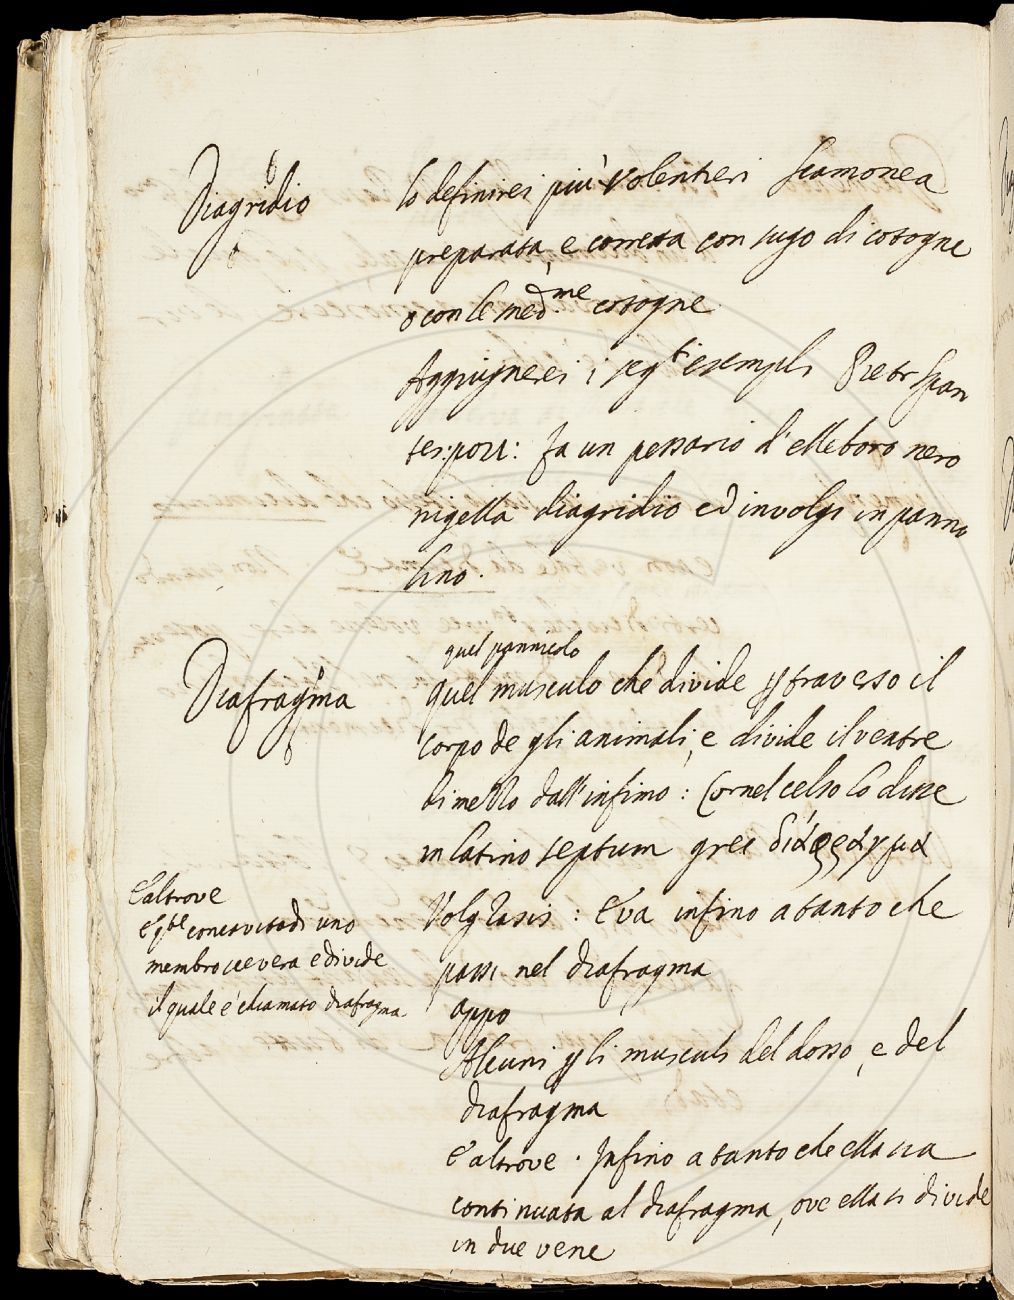 Diagridio
Io definirei più volentieri Scamonea
preparata, e corretta con sugo di cotogne
o con le med.me cotogne.
Aggiugnerei i seg.ti esempli Pietr Span
tes: pov: fa un pessario d'elleboro nero
nigella diagridio ed involgi in panno
lino.
Diafragma
quel pannicolo
quel musculo che divide p traverso il
corpo de gli animali, e divide il ventre
di mezzo dall'infimo: Cornel celso lo disse
in latino septum grec διάφραγμα
Volg Rasis: E va infino a tanto che
passi nel diafragma
E altrove
E q.ta concavità di uno
membro severa e divide
il quale è chiamato diafragma
appo
Alcuni p li musculi del dosso, e del
diafragma
E altrove. Infino a tanto che ella sia
continuata al diafragma, ove ella si divide
in due vene